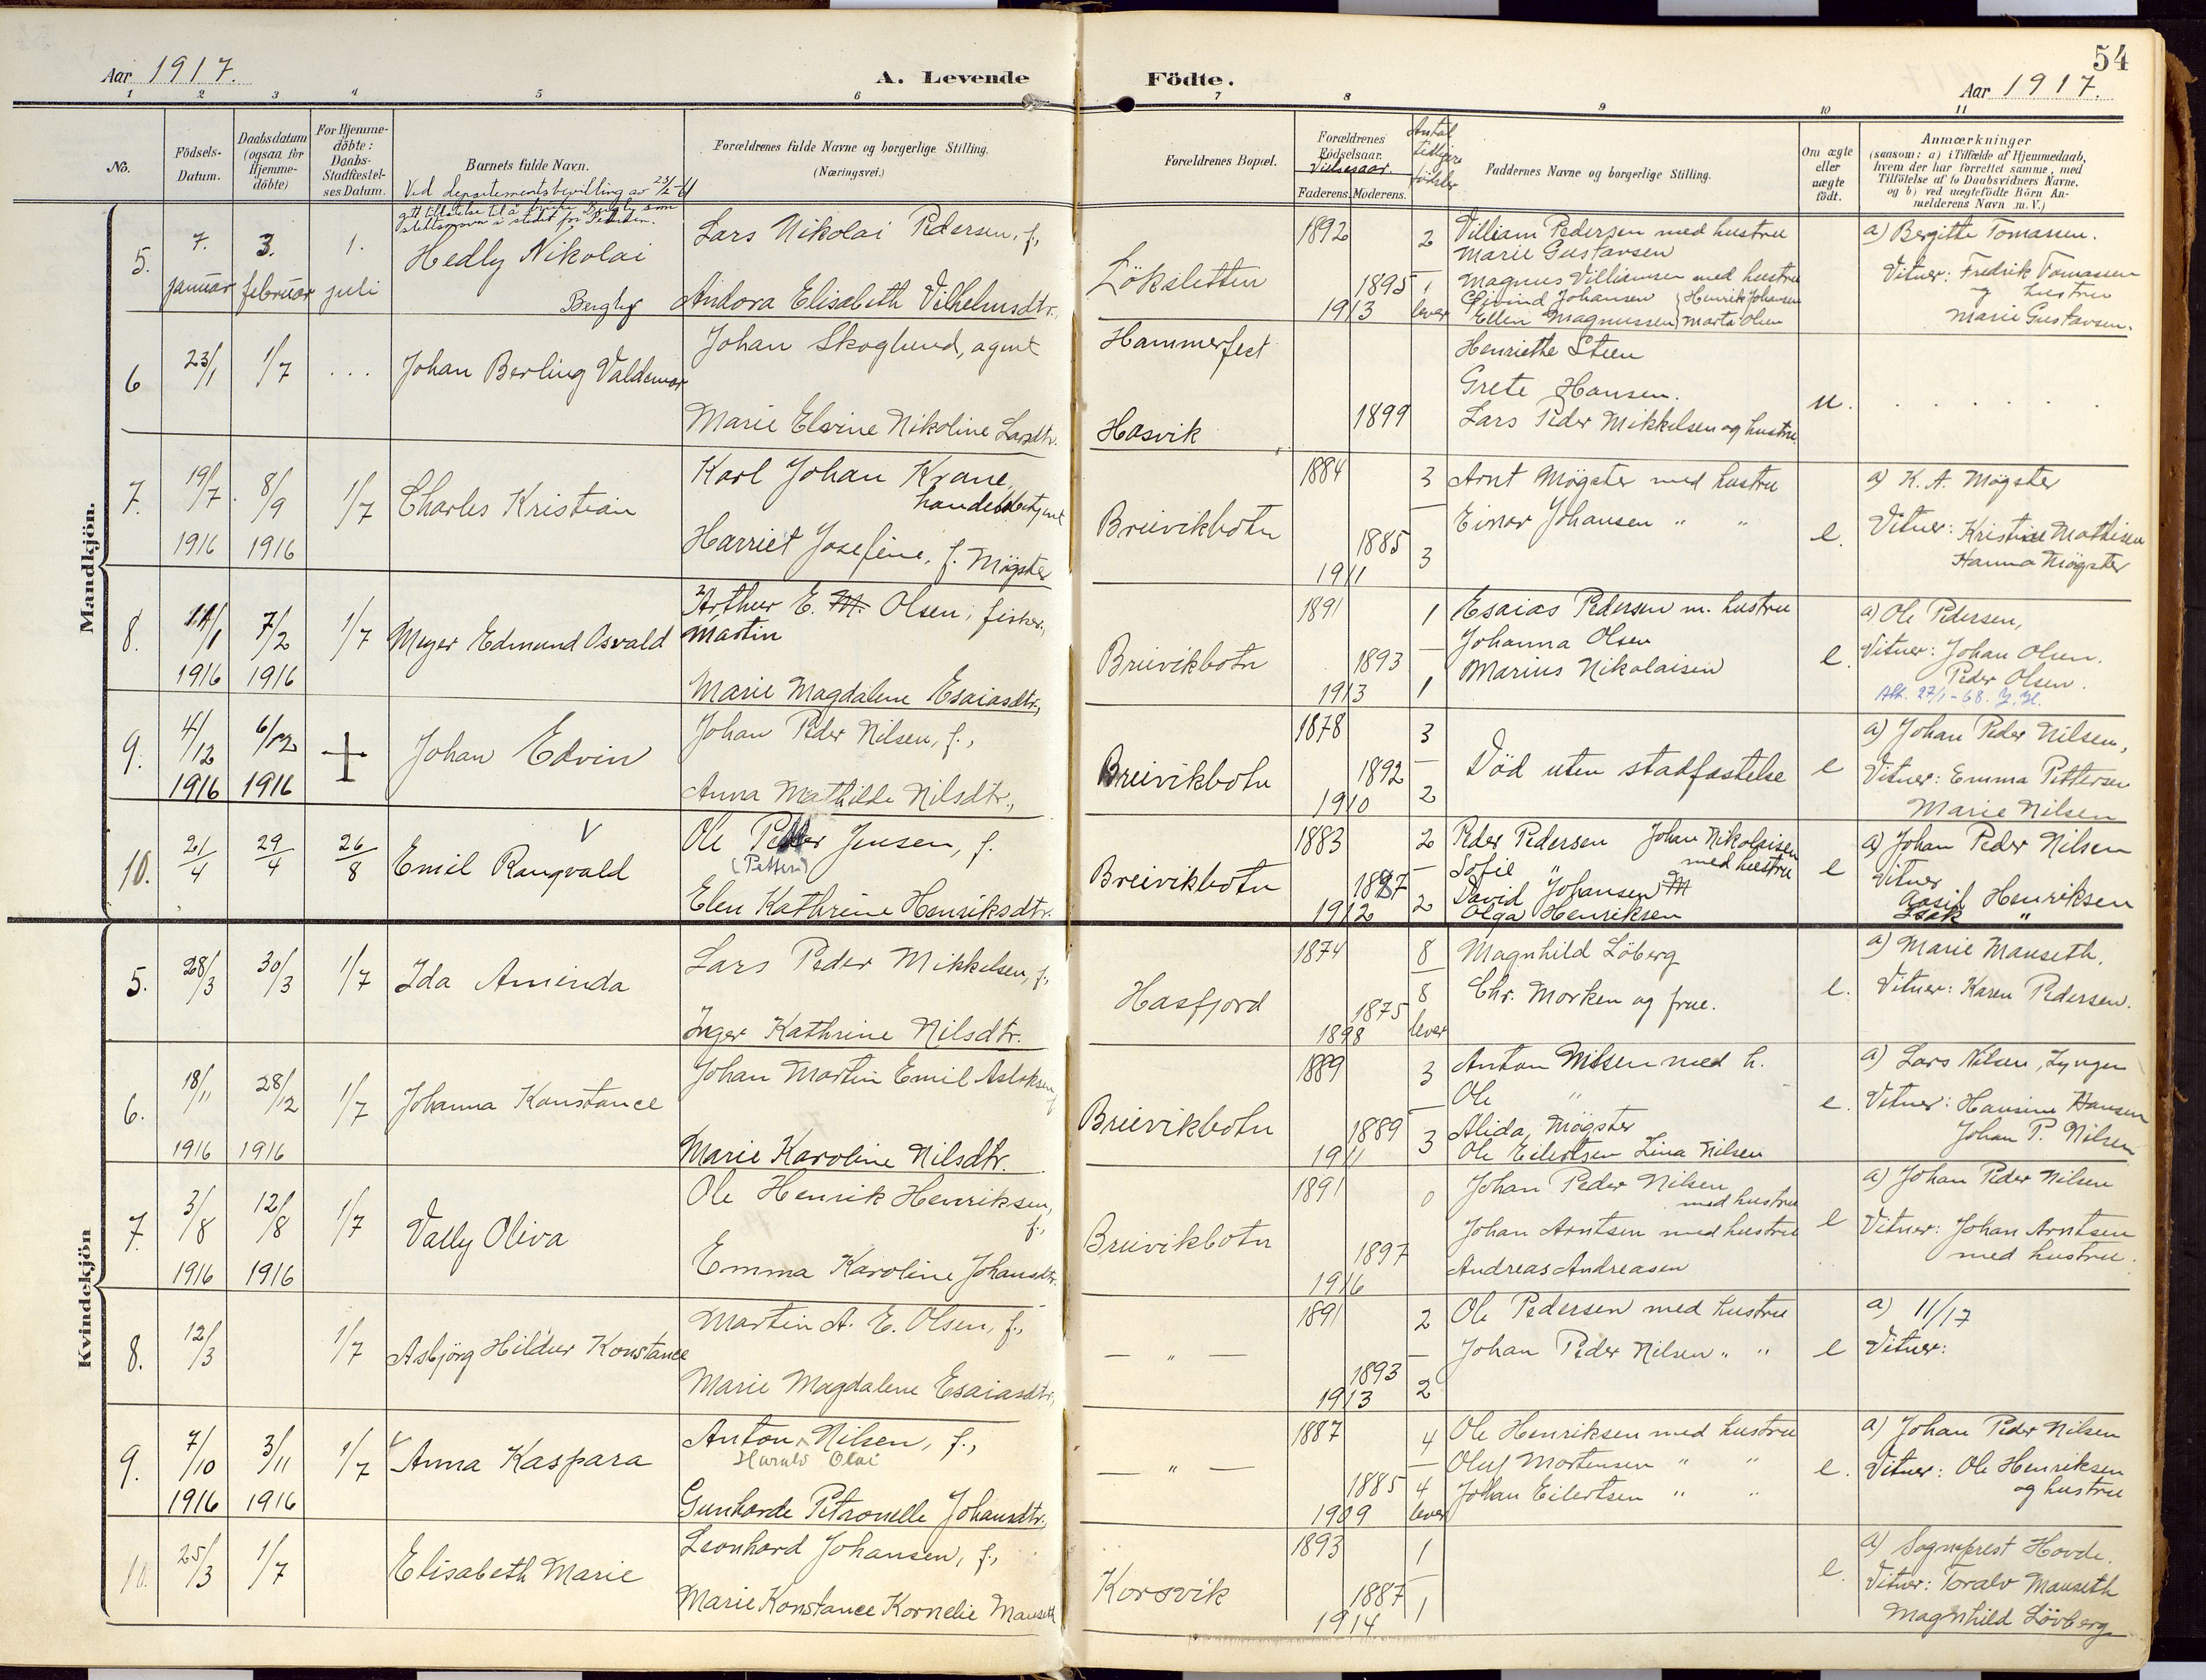 54
Aar 1917.
A. Levende Födte.
Aar 1917.
1 2 3 4 5 6 7 8 9 10 11
No.
Födsels-Datum.
Daabsdatum (ogsaa for Hjemme-döbte)
For Hjemme-döbte: Daabs-Stadfæstel-ses Datum.
Barnets fulde Navn.
Forældrenes fulde Navne og borgerlige Stilling.
(Næringsvei.)
Forældrenes Bopæl.
Forældrenes Födselsaar.
Vielsesaar.
Faderens. Moderens.
Antal tidligere födsler
Faddernes Navne og borgerlige Stilling.
Om ægte eller uægte födt.
Anmærkninger
(saasom: a) i Tilfælde af Hjemmedaab,
hvem der har forrettet samme, med
Tilföielse af to Daabsvidners Navne.
og b) ved uægtefödte Börn An-
melderens Navn m. V.)
Mandkjön.
Ved departementsbevilling av 23/2-61
gitt tillatelse til å bruke Bergby som
slektsnavn i stedet for Pedersen.
5. 7. januar 3. februar 1. juli Hedly Nikolai
Bergby
Lars Nikolai Pedersen, f.,
Andora Elisabeth Vilhelmsdtr.
Löksletten
1892 1895 1913
2 – 1 lever
Villiam Pedersen med hustru
Marie Gustavsen
Magnus Villiamsen med hustru
Eivind Johansen Henrik Johansen
Ellen Magnussen Marta Olsen
a) Bergitte Tomassen.
Vitner: Fredrik Tomassen
og hustru
Marie Gustavsen.
6 23/1 1/7 . . . Johan Berling Valdemar
Johan Skoglund, agent
Marie Elvine Nikoline Larsdtr.
Hammerfest
Hasvik
1899
Henriette Steen
Grete Hansen.
Lars Peder Mikkelsen og hustru.
u.
. . . . . .
7. 19/7 1916 8/9 1916 1/7 Charles Kristian
Karl Johan Krane,
handelsbetjent
Harriet Josefine, f. Mögster
Breivikbotn
1884 1885 1911
3 – 3
Arnt Mögster med hustru
Einar Johansen " "
e.
a) K. A. Mögster
Vitner: Kristine Mathisen
Hanna Mögster
8. 11/1 1916 7/2 1916 1/7 Meyer Edmund Osvald
Arthur E. M. Olsen, fisker,
Martin
Marie Magdalene Esaiasdtr.,
Breivikbotn
1891 1893 1913
1 – 1
Esaias Pedersen m. hustru
Johanna Olsen
Marius Nikolaisen
e.
a) Ole Pedersen,
Vitner: Johan Olsen.
Peder Olsen.
Att. 27/1-68.
9. 4/12 1916 6/12 1916 + Johan Edvin
Johan Peder Nilsen, f.,
Anna Mathilde Nilsdtr.,
Breivikbotn
1878 1892 1910
3 – 2
Död uten stadfæstelse
e
a) Johan Peder Nilsen,
Vitner: Emma Pettersen
Marie Nilsen
10. 21/4 29/4 26/8 Emil Rangvald
Ole Petter Jensen, f.
(Petter)
Elen Kathrine Henriksdtr.
Breivikbotn
1883 1887 1912
2 – 2
Peder Pedersen Johan Nikolaisen
Sofie " med hustru
David Johansen
Olga Henriksen
e
a) Johan Peder Nilsen
Vitner
Aasil Henriksen
Isak "
Kvindekjön
5. 28/3 30/3 1/7 Ida Aminda
Lars Peder Mikkelsen, f.,
Inger Kathrine Nilsdtr.
Hasfjord
1874 1875 1898
8 8 lever
Magnhild Löberg
Chr. Morken og frue.
e.
a) Marie Mauseth.
Vitner: Karen Pedersen.
6. 18/11 1916 28/12 1916 1/7 Johanna Konstance
Johan Martin Emil Aslaksen
f
Marie Karoline Nilsdtr.
Breivikbotn
1889 1889 1911
3 – 3
Anton Nilsen med h.
Ole "
Alida Mögster
Ole Eilertsen Lina Nilsen
e.
a) Lars Nilsen, Lyngen
Vitner: Hansine Hansen
Johan P. Nilsen
7. 3/8 1916 12/8 1916 1/7 Vally Oliva
Ole Henrik Henriksen,
f.,
Emma Karoline Johansdtr.
Breivikbotn
1891 1897 1916
0
Johan Peder Nilsen
med hustru
Johan Arntsen med hustru
Andreas Andreasen
e
a) Johan Peder Nilsen
Vitner: Johan Arntsen
med hustru.
8. 12/3 1/7 Asbjörg Hildur Konstance
Martin A. E. Olsen, f.,
Marie Magdalene Esaiasdtr.,
— " —
1891 1893 1913
2 – 2
Ole Pedersen med hustru
Johan Peder Nilsen " "
e
a) 11/17
Vitner:
9. 7/10 1916 3/11 1916 1/7 Anna Kaspara
Anton Nilsen, f.,
Harald Olai
Gunharde Petronelle Johansdtr.,
— " —
1887 1885 1909
4 – 4 lever
Ole Henriksen med hustru
Oluf Mortensen " "
Johan Eilertsen " "
e.
a) Johan Peder Nilsen
Vitner: Ole Henriksen
og hustru
10. 25/3 1/7 Elisabeth Marie
Leonhard Johansen, f.,
Marie Konstance Kornelie Mauseth
Korsvik
1893 1887 1914
1 – 1
e.
a) Sogneprest Hovde.
Vitner: Toralv Mauseth
Magnhild Lövberg